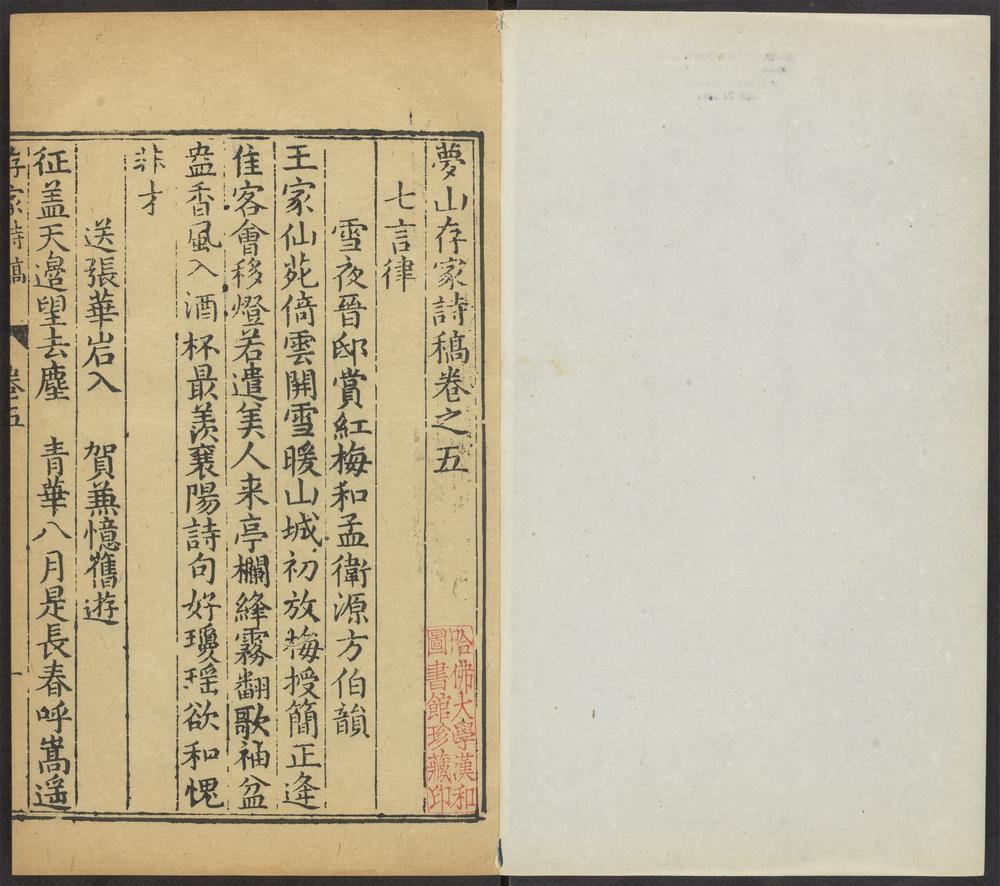 夢山存家詩稿卷之五
七言律
雪夜晉邸賞紅梅和孟衛源方伯韻
王家仙苑倚雲開雪暖山城初放梅授簡正逄
佳客會移燈若遣美人来亭欄絳霧翻歌袖盆
盎香風入酒杯最羨襄陽詩句好瓊瑶欲和愧
非才
送張華岩入 賀兼憶舊遊
征盖天邉望去塵 青華八月是長春呼嵩遥
存家詩稿 卷五 一
哈佛大學漢和
圖書館珍藏印